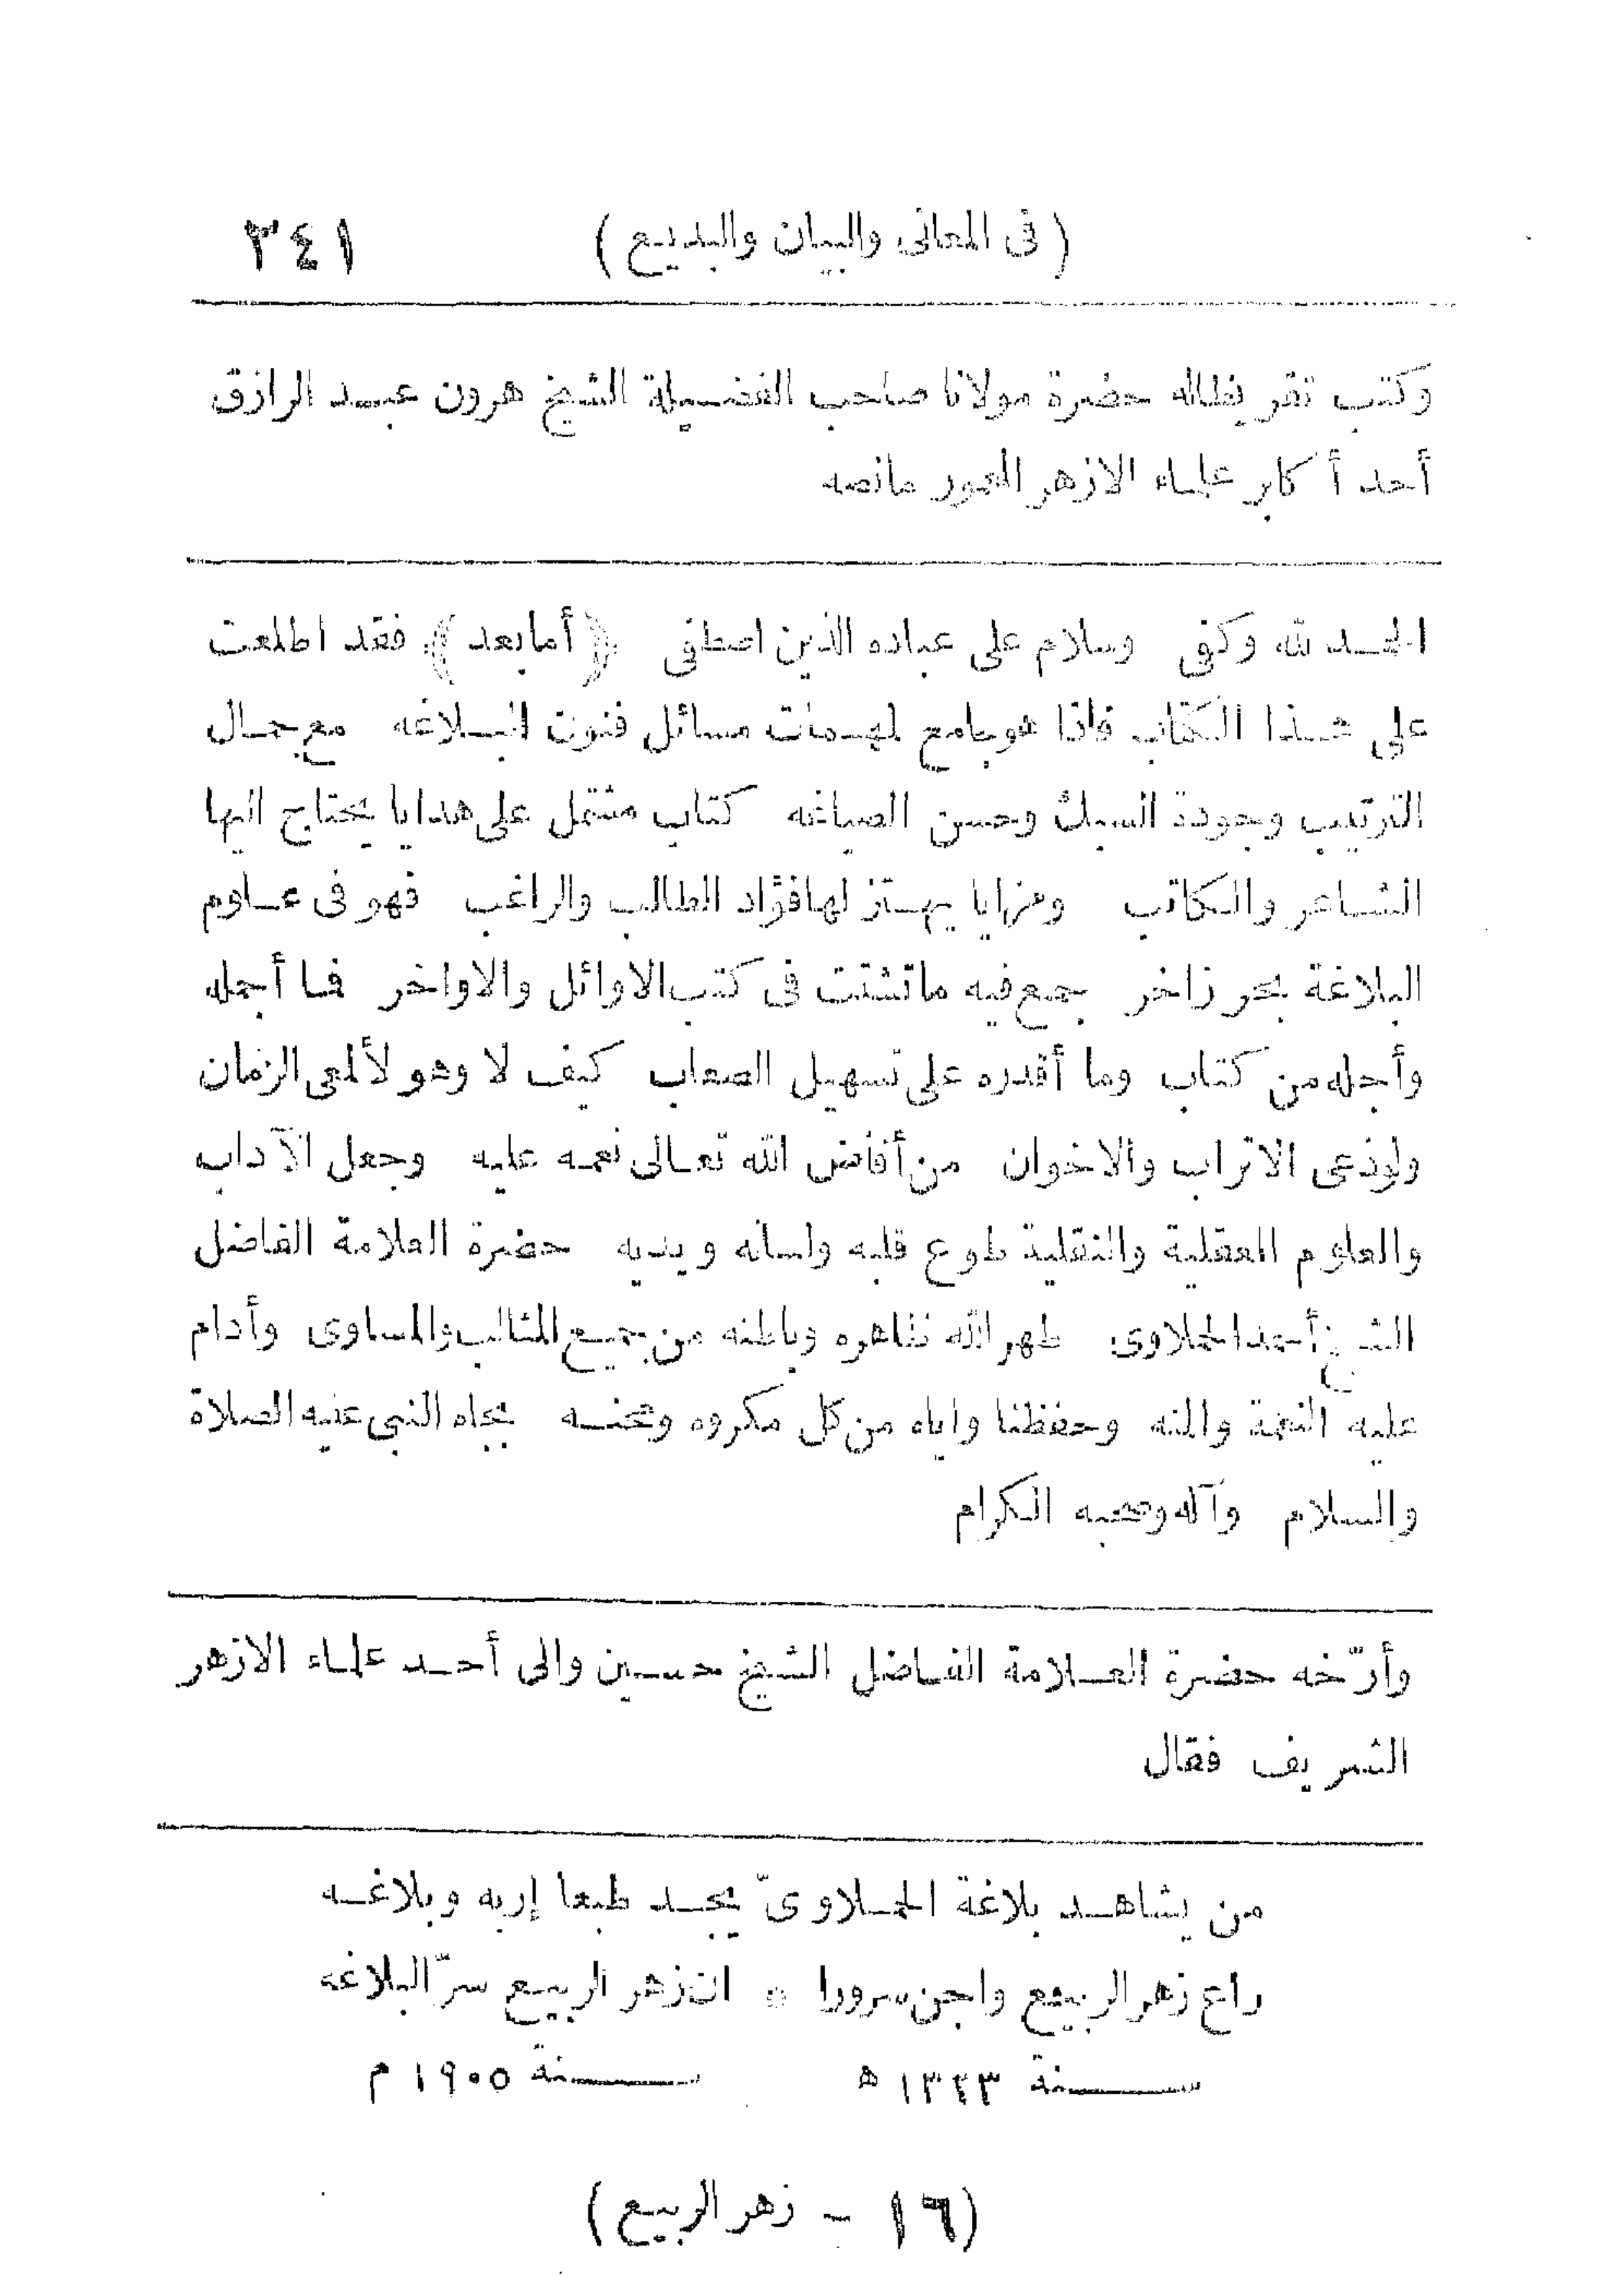 (فى المعانى والبيان والبديع) ٢٤١
وكتب تقريظاله حضرة مولانا صاحب الفضيلة الشيخ هرون عبد الرازق
أحد أكابر علماء الازهر المعمور مانصه
الحمد لله وكفى وسلام على عباده الذين اصطفى ﴿أما بعد﴾ فقد اطلعت
على هذا الكتاب فاذا هو جامع لمهمات مسائل فنون البلاغه مع جمال
الترتيب وجودة السبك وحسن الصياغه كتاب مشتمل على هدايا يحتاج اليها
الشاعر والكاتب ومزايا يهتز لها فؤاد الطالب والراغب فهو فى علوم
البلاغة بحر زاخر جمع فيه ما تشتت فى كتب الاوائل والاواخر فما أجمله
وأجله من كتاب وما أقدره على تسهيل الصعاب كيف لا وهو لألمعى الزمان
ولوذعى الاتراب والاخوان من أفاض الله تعالى نعمه عليه وجعل الآداب
والعلوم العقلية والنقلية طوع قلبه ولسانه ويديه حضرة العلامة الفاضل
الشيخ أحمد الحملاوى طهر الله ظاهره وباطنه من جميع المثالب والمساوى وأدام
عليه النعمة والمنه وحفظنا واياه من كل مكروه ومحنه بجاه النبى عليه الصلاة
والسلام وآله وصحبه الكرام
وأرّخه حضرة العلامة الفاضل الشيخ حسين والى أحد علماء الازهر
الشريف فقال
من يشاهد بلاغة الحملاوىّ يجد طبعا إربه وبلاغه
راع زهر الربيع واجن سرورا * ان زهر الربيع سرّ البلاغه
سنة ١٣٢٣ ه سنة ١٩٠٥ م
(١٦ - زهر الربيع)